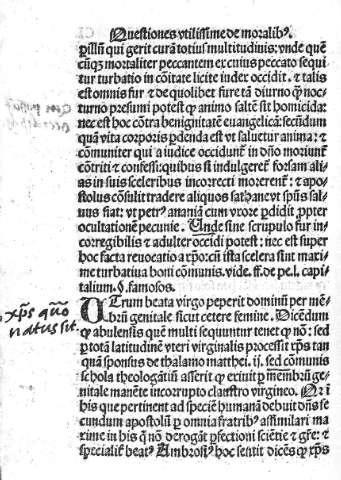 Questiones vtilissime de moralibꝰ
ꝑ illũ qui gerit curã totius multitudinis: vnde quẽ
cũqꝫ mortaliter peccantem ex cuius peccato sequi
tur turbatio in cõitate licite iudex occidit. ⁊ talis
est omnis fur ⁊ de quolibet fure tã diurno ꝙ̃ noc-
turno presumi potest ꝙ animo saltẽ sit homicida:
nec est hoc cõtra benignitatẽ euangelicã: secũdum
quã vita corporis ꝑdenda est vt saluetur anima: ⁊
cõmuniter qui a iudice occidunt̃ in dño moriunt̃
cõtriti ⁊ confessi: quibus si indulgeret̃ forsam ali-
as in suis sceleribus incorrecti morerent̃: ⁊ apo-
stolus cõsulit tradere aliquos sathane vt spũs sal-
uus fiat: vt petrꝰ ananiã cum vxore ꝑdidit ꝓpter
occultationẽ pecunie. Unde sine scrupulo fur in-
corregibilis ⁊ adulter occidi potest: nec est super
hoc facta reuocatio a xp̃o: cũ ista scelera sint maxi-
me turbatiua boni cõmunis. vide. ff. de pe. l. capi-
talium. §. famosos.
xp̃s quõ
natus sit.
UTrum beata virgo peperit dominũ per mẽ-
brũ genitale sicut cetere femine. Dicẽdum
ꝙ abulensis quẽ multi sequuntur tenet ꝙ nõ: sed
ꝑ totã latitudinẽ vteri virginalis processit xp̃s tan
quã sponsus de thalamo matthei. ij. sed cõmunis
schola theologãtiũ asserit ꝙ exiuit ꝑ mẽbrũ ge-
nitale manẽte incorrupto claustro virgineo. Qr̃ ĩ
his que pertinent ad speciẽ humanã debuit dñs se
cundum apostolũ ꝑ omnia fratribꝰ assimilari ma
xime in his ꝙ̃ nõ derogãt ꝑfectioni sciẽtie ⁊ gr̃e: ⁊
ꝑ specialiẽ beatꝰ Ambrosiꝰ hoc sentit dicẽs ꝙ xp̃s